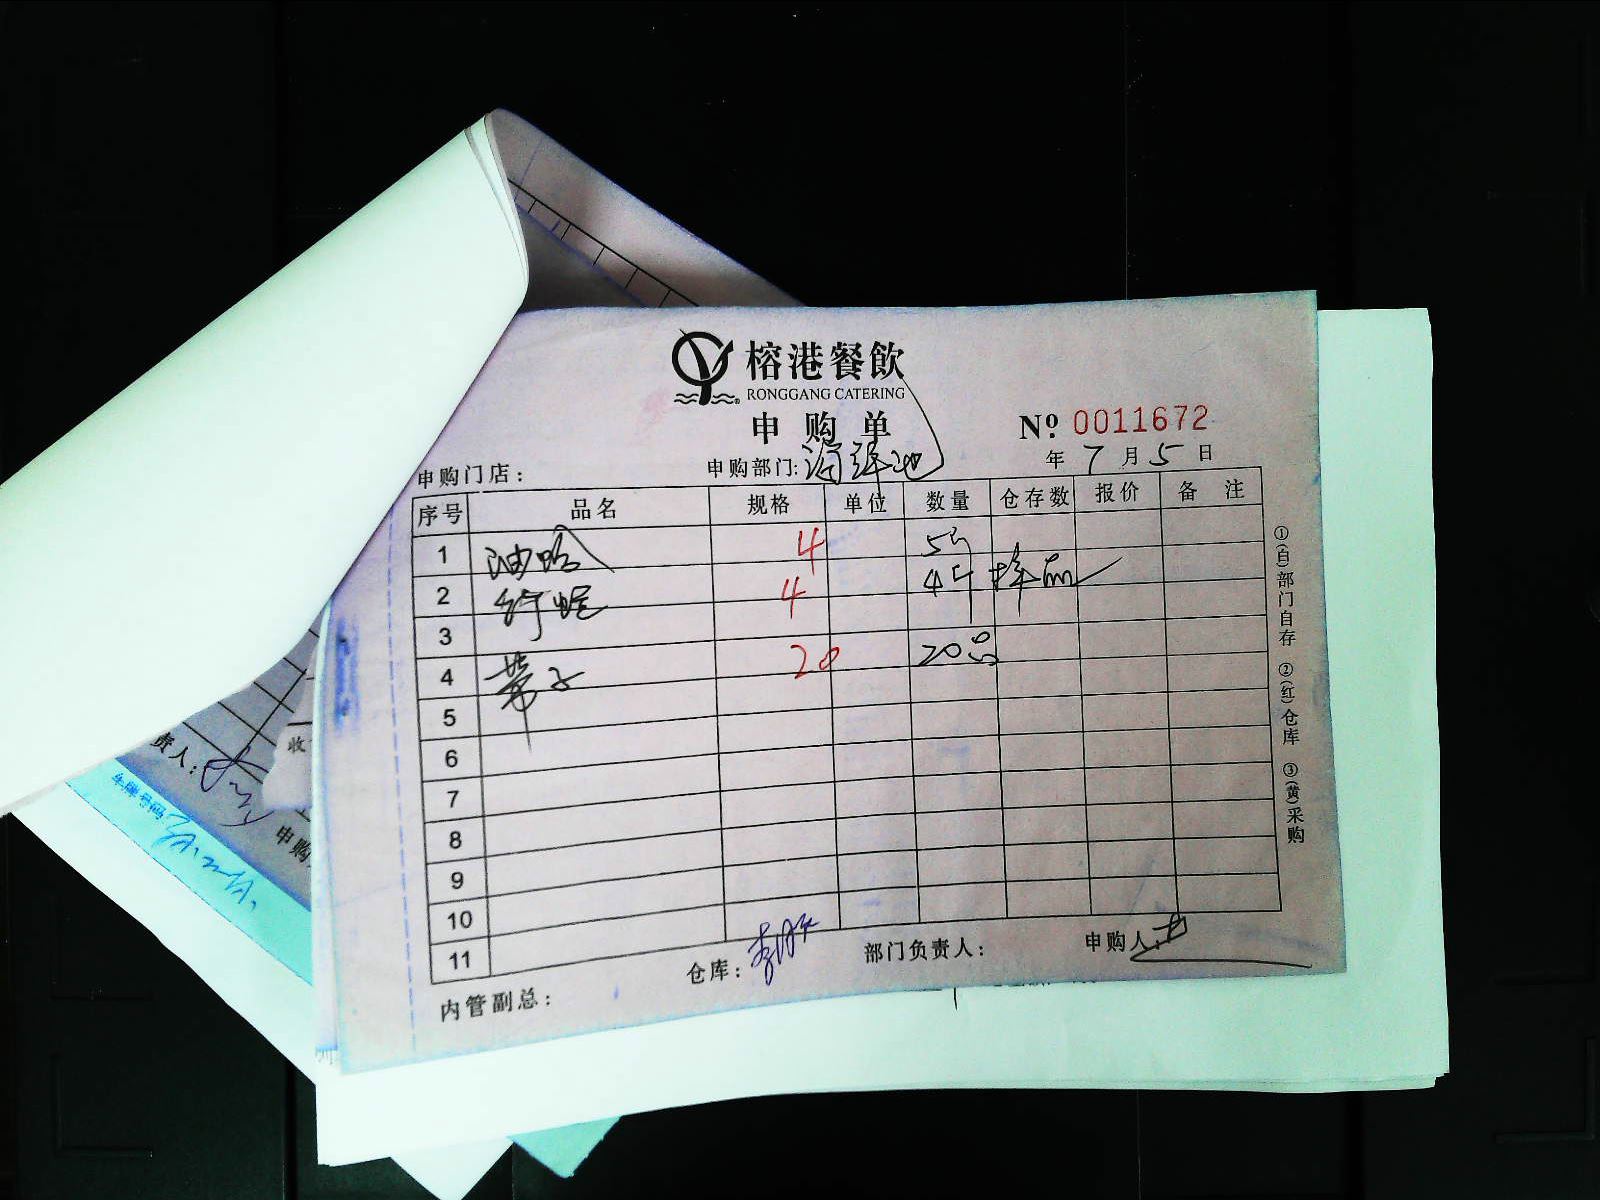 榕港餐飲
RONGGANG CATERING
申购单
Nº 0011672
年 7 月 5 日
申购门店：
申购部门:海鲜池
序号 品名 规格 单位 数量 仓存数 报价 备注
1 油蛤 4 5斤
2 4 4斤 样品
3
4 带子 20 20只
5
6
7
8
9
10
11
仓库：
部门负责人：
申购人：
内管副总：
①(白)部门自存 ②(红)仓库 ③(黄)采购
责人：
收
申购
车牌号码